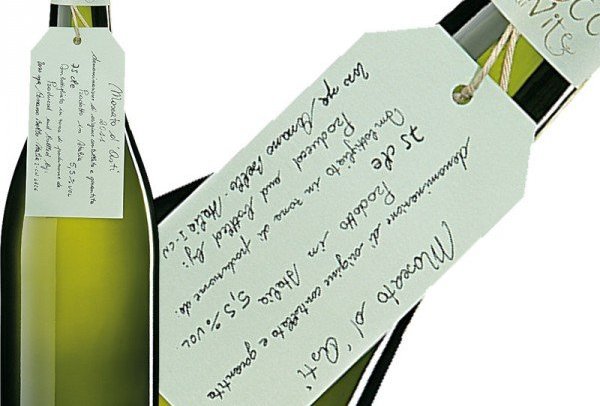 Moscato d'Asti
2011
denominazione di origine controllata e garantita
75 cle Prodotto in Italia 5,5% VOL
Imbottigliato in zona di produzione da
Produced and Bottled by:
Moscato d'Asti
denominazione di origine controllata e garantita
75 cle Prodotto in Italia 5,5% VOL
Imbottigliato in zona di produzione da
Produced and bottled by:
Italia I-CN